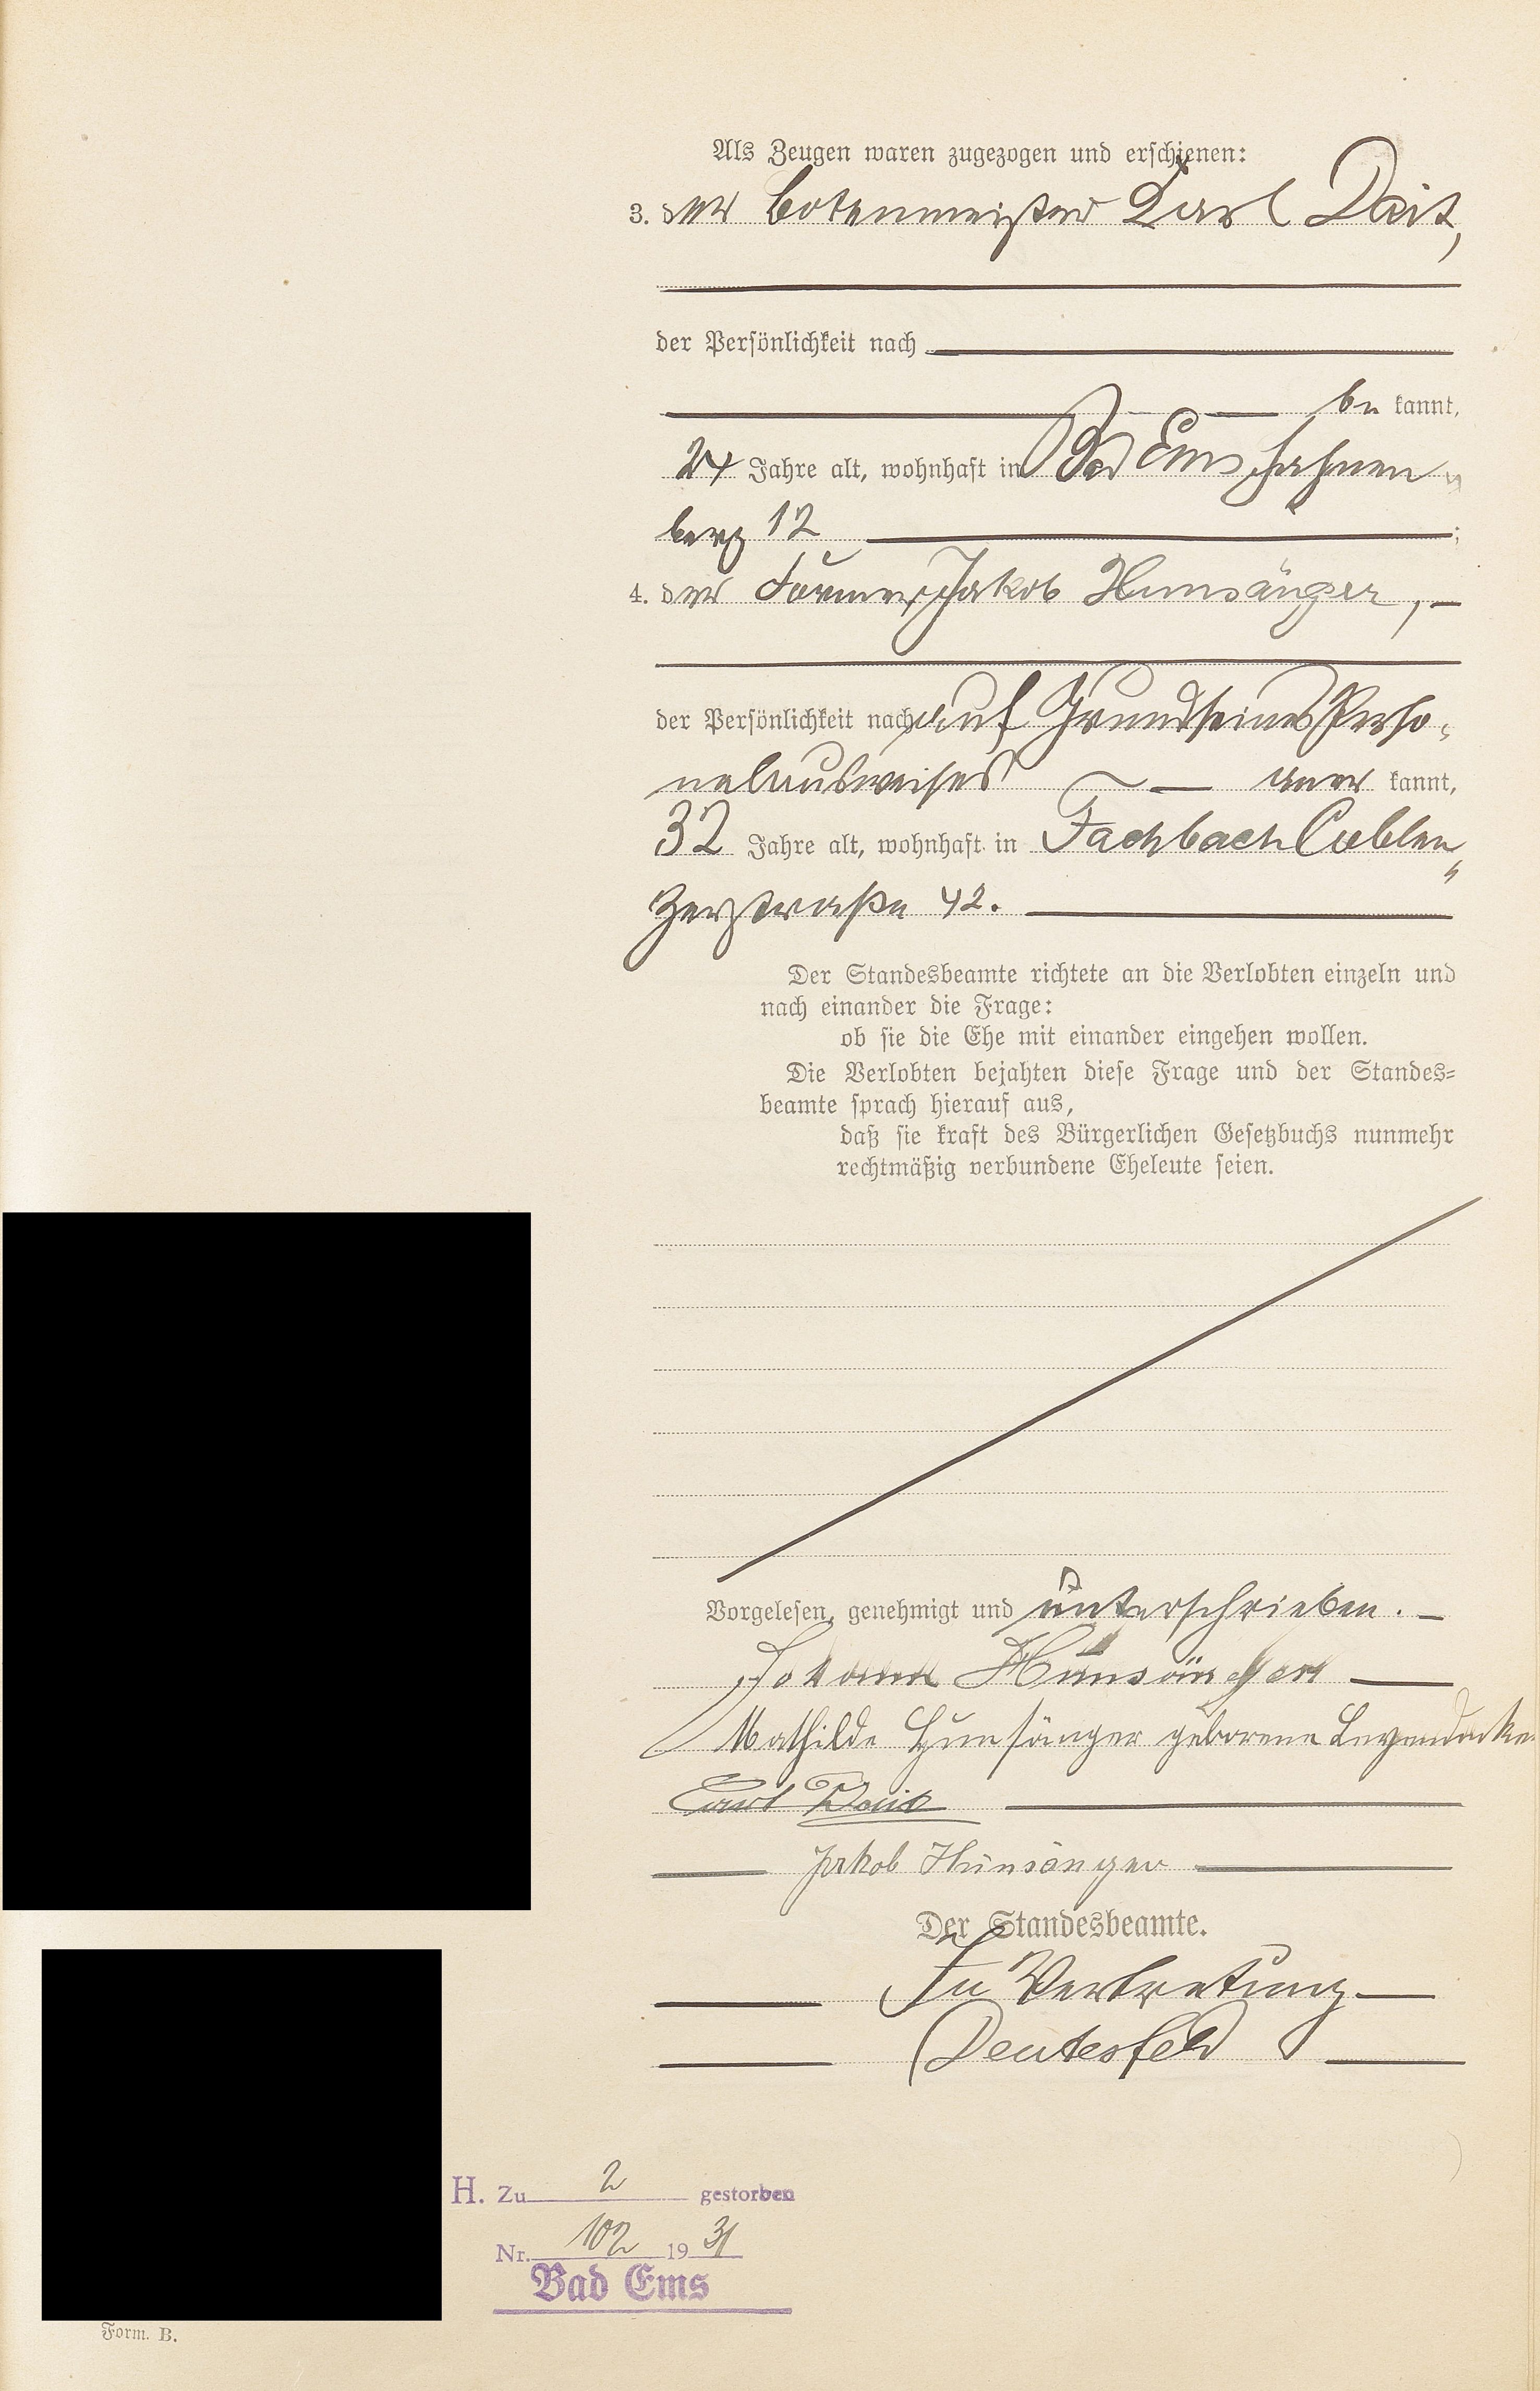 Als Zeugen waren zugezogen und erschienen:
3. der Botenmeister Karl Dait,
der Persönlichkeit nach
be kannt,
24 Jahre alt, wohnhaft in Bad Ems, Hahnen„
berg 12 ;
4. der Former Jakob Hunsänger,
der Persönlichkeit nach auf Grund seines Perso„
nalausweises aner kannt,
32 Jahre alt, wohnhaft in Fachbach Coblen„
zerstraße 42.
Der Standesbeamte richtete an die Verlobten einzeln und
nach einander die Frage:
ob sie die Ehe mit einander eingehen wollen.
Die Verlobten bejahten diese Frage und der Standes=
beamte sprach hierauf aus,
daß sie kraft des Bürgerlichen Gesetzbuchs nunmehr
rechtmäßig verbundene Eheleute seien.
Vorgelesen, genehmigt und unterschrieben.
Johann Hunsänger
Mathilde Hunsänger geborene Leyendecke
Carl
Jakob Hunsänger
Der Standesbeamte.
In Vertretung
Deutesfeld
H. Zu 2 gestorben
Nr. 102 19 31
Bad Ems
Form. B.